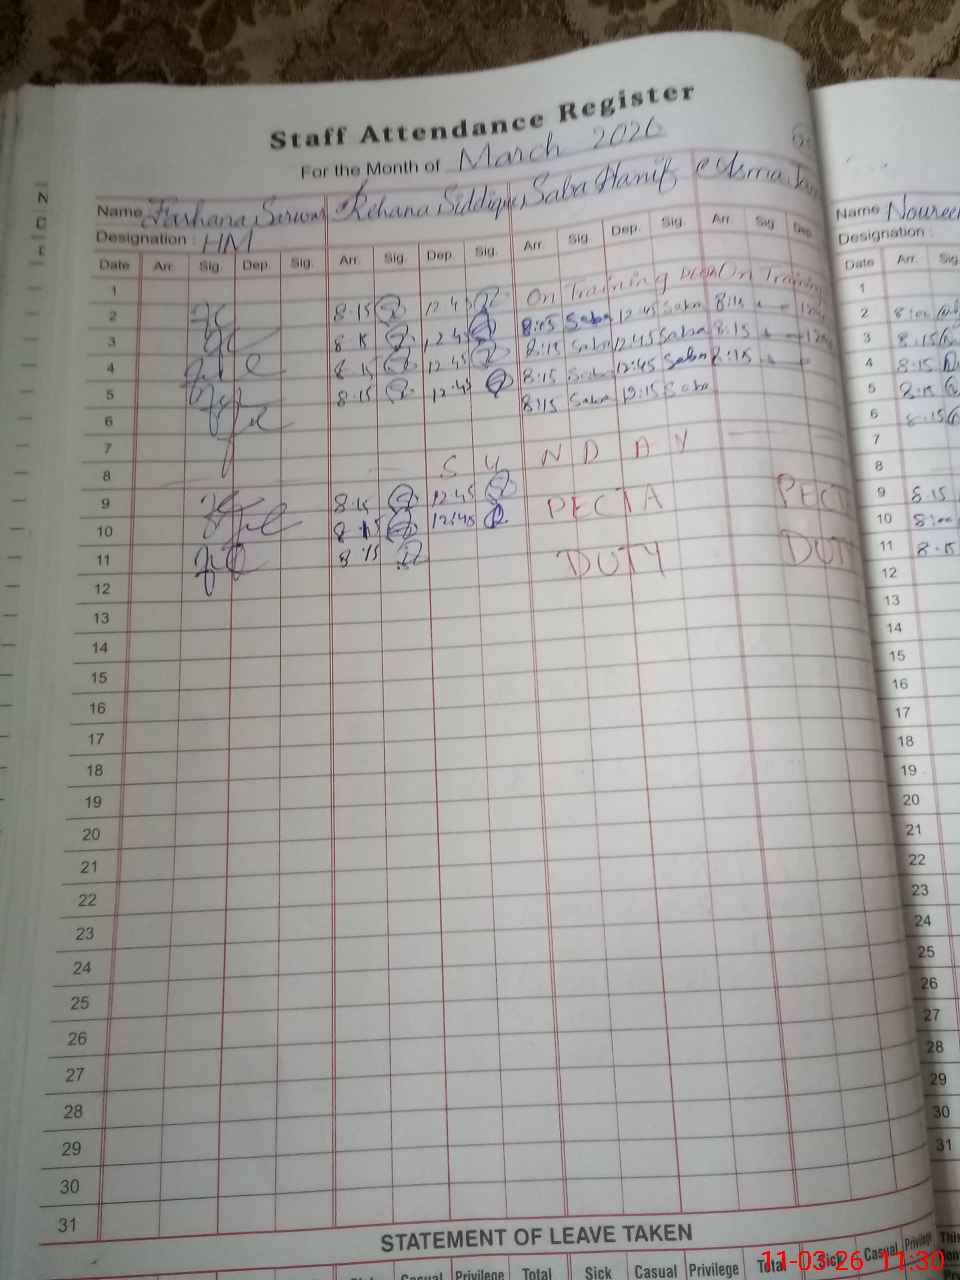 Staff Attendance Register
For the Month of March 2026
Name Farhana Sarwar Rehana Siddique Saba Hanif Name Noureen
Designation : HM Designation :
Date Arr. Sig. Dep. Sig. Arr. Sig. Dep. Sig. Arr. Sig. Dep. Sig. Arr. Sig. Dep. Date Arr. Sig
1 1
2 8.15 12 45 On Training On Training 2 8:00
3 8 15 12 45 8:15 Saba 12 45 Saba 8:15 3 8.15
4 8 15 12 45 8:15 Saba 12 45 Saba 8:15 4 8.15
5 8.15 12:45 8:15 Saba 12:45 Saba 8:15 5 8.15
6 8:15 Saba 12:15 Saba 6 8.15
7 7
8 S U N D A Y 8
9 8.15 12 45 PECTA PECT 9 8.15
10 8 15 12:45 10 8:00
11 8 15 DUTY DUT 11 8.15
12 12
13 13
14 14
15 15
16 16
17 17
18 18
19 19
20 20
21 21
22 22
23 23
24 24
25 25
26 26
27 27
28 28
29 29
30 30
31 31
STATEMENT OF LEAVE TAKEN
Casual Privilege Total Sick Casual Privilege Total Sick Casual Privilege
11-03-26 11:30